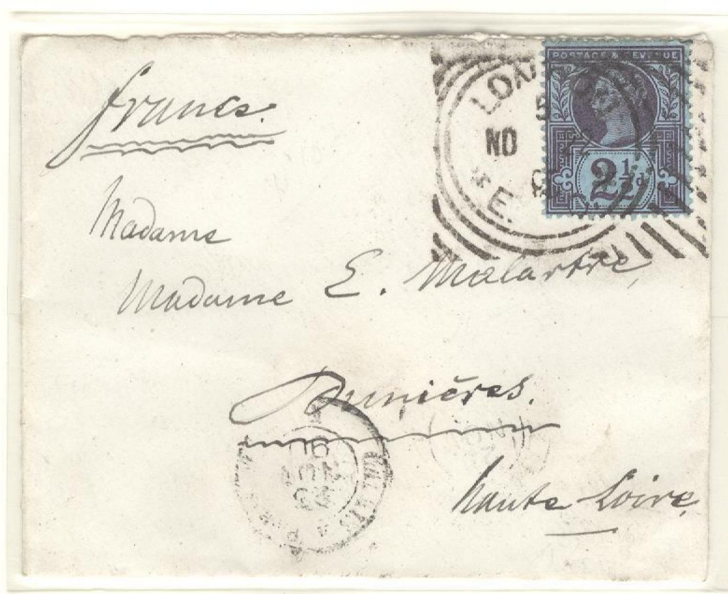 france.
POSTAGE & REVENUE
2½d
LON
NO
E.
Madame
Madame E. Malartre,
Dunières.
Haute Loire,
90